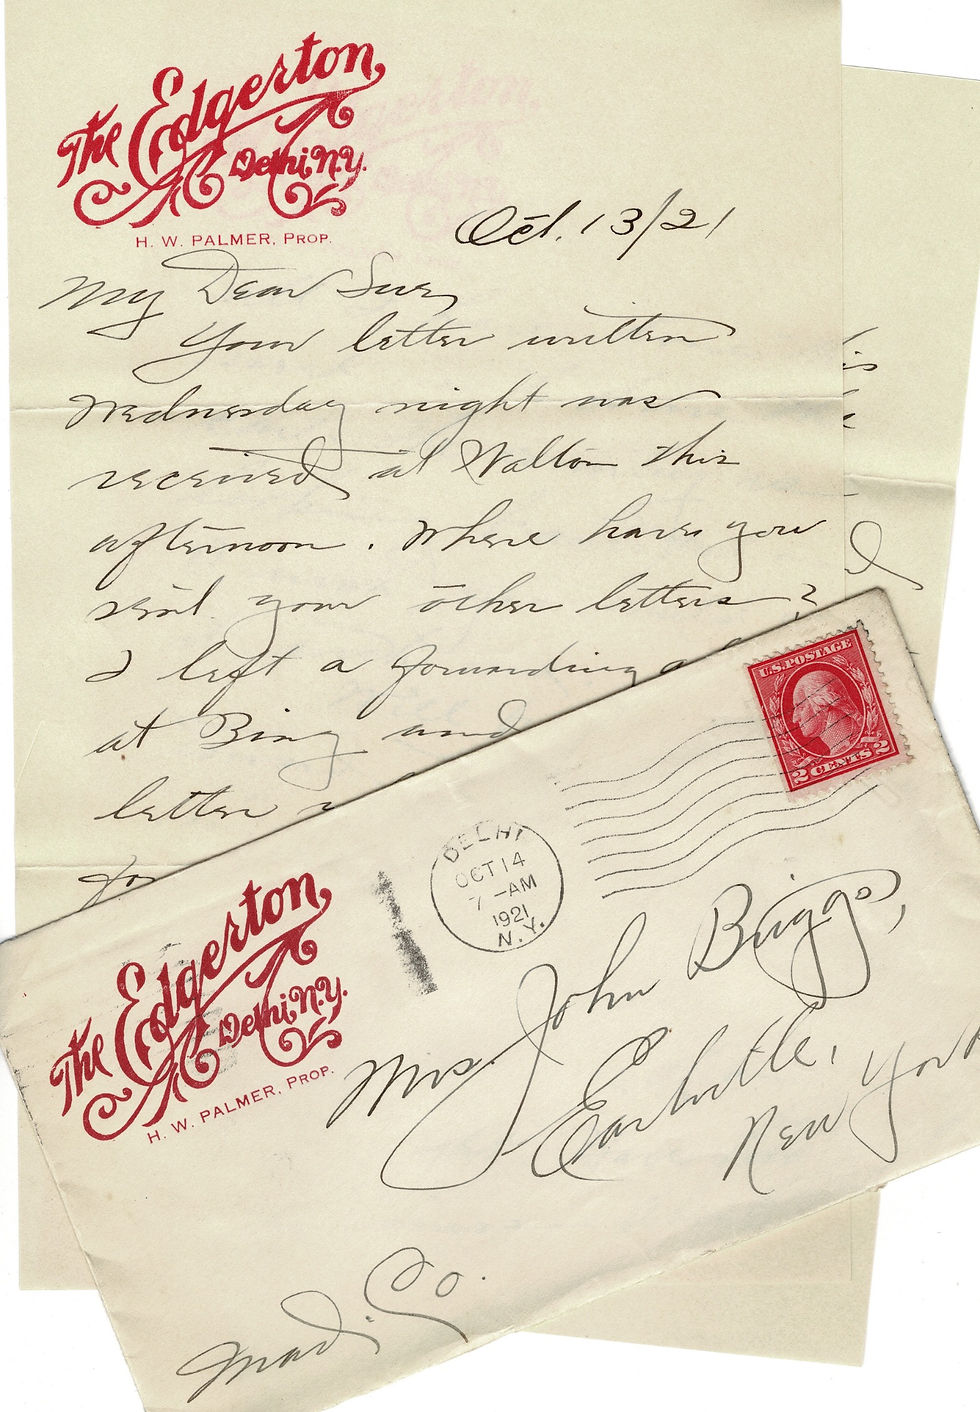 The Edgerton,
Delhi, N.Y.
H. W. PALMER, PROP.
Oct. 13/21
My Dear Sue,
Your letter written
Wednesday night was
received at Walton this
afternoon. Where have you
sent your other letters?
I left a forwarding
at Bing and
letter
for
U.S. POSTAGE
2 CENTS 2
DELHI
OCT 14
7 -AM
1921
N.Y.
The Edgerton,
Delhi, N.Y.
H. W. PALMER, PROP.
Mrs. John Briggs,
Earlville,
New York
Mad. Co.